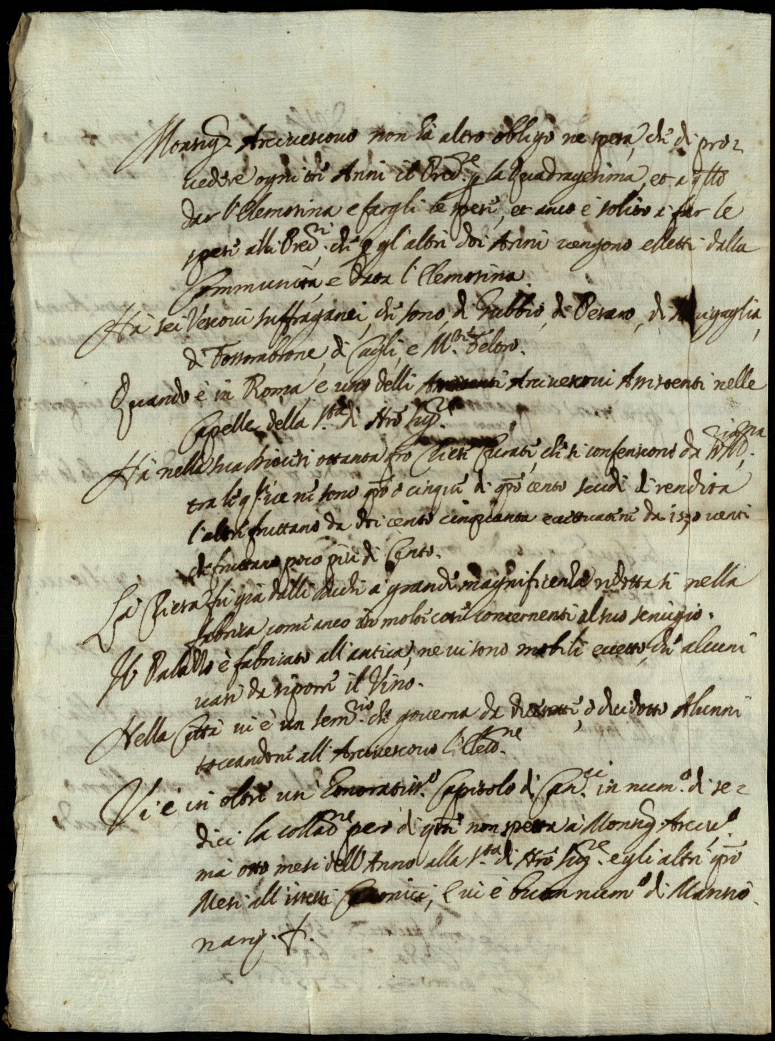 Monsig.r Arcivescovo non hà altro obligo ne spesa, che di pro=
vedere ogni tre Anni il Pred.re p la Quadragesima, et a q.sto
dar l'Elemosina e fargli le spese, et anco è solito a far le
spese alli Pred.ri che p gl'altri doi Anni vengono eletti dalla
Communità, e data l'Elemosina.
Hà sei Vescovi suffraganei, che sono, di Gubbio, di Pesaro, di
di Fossombrone, di Cagli, e M.te Feltro.
Quando è in Roma, è uno delli Arcivescovi Assistenti nelle
Capelle della S.tà di Nro Sig.re
Hà nella sua Diocesi ottanta Chiese Curate, che si conferiscono da
tra le q.li ve ne sono q.ro ò cinque di q.ro cento scudi di rendita
l'altre fruttano da doi cento cinquanta da venti
che fruttano poco più di Cento.
La Chiesa fù già dalli Duchi à grande magnificenza ridotta sì nella
fabrica come anco in molte cose concernenti al suo servigio.
Il Palazzo è fabricato all'antica, ne vi sono mobili eccetto, che alcuni
vasi da riporre il Vino.
Nella Città vi è un Sem.rio che governa da diecisette, ò diecidotto Alunni
toccandone all'Arcivescovo l'Elett.ne
Vi è in oltre un' Honoratiss.o Capitolo di Can.ci in num.o di se=
dici la collat.ne però di q.ti non spetta à Monsig. Arcive.o
mà otto mesi dell'Anno alla S.tà di Nro Sig.re e gli altri q.ro
Mesi all'istessi Canonici, e vi è buon num.o di Mansio=
narij.